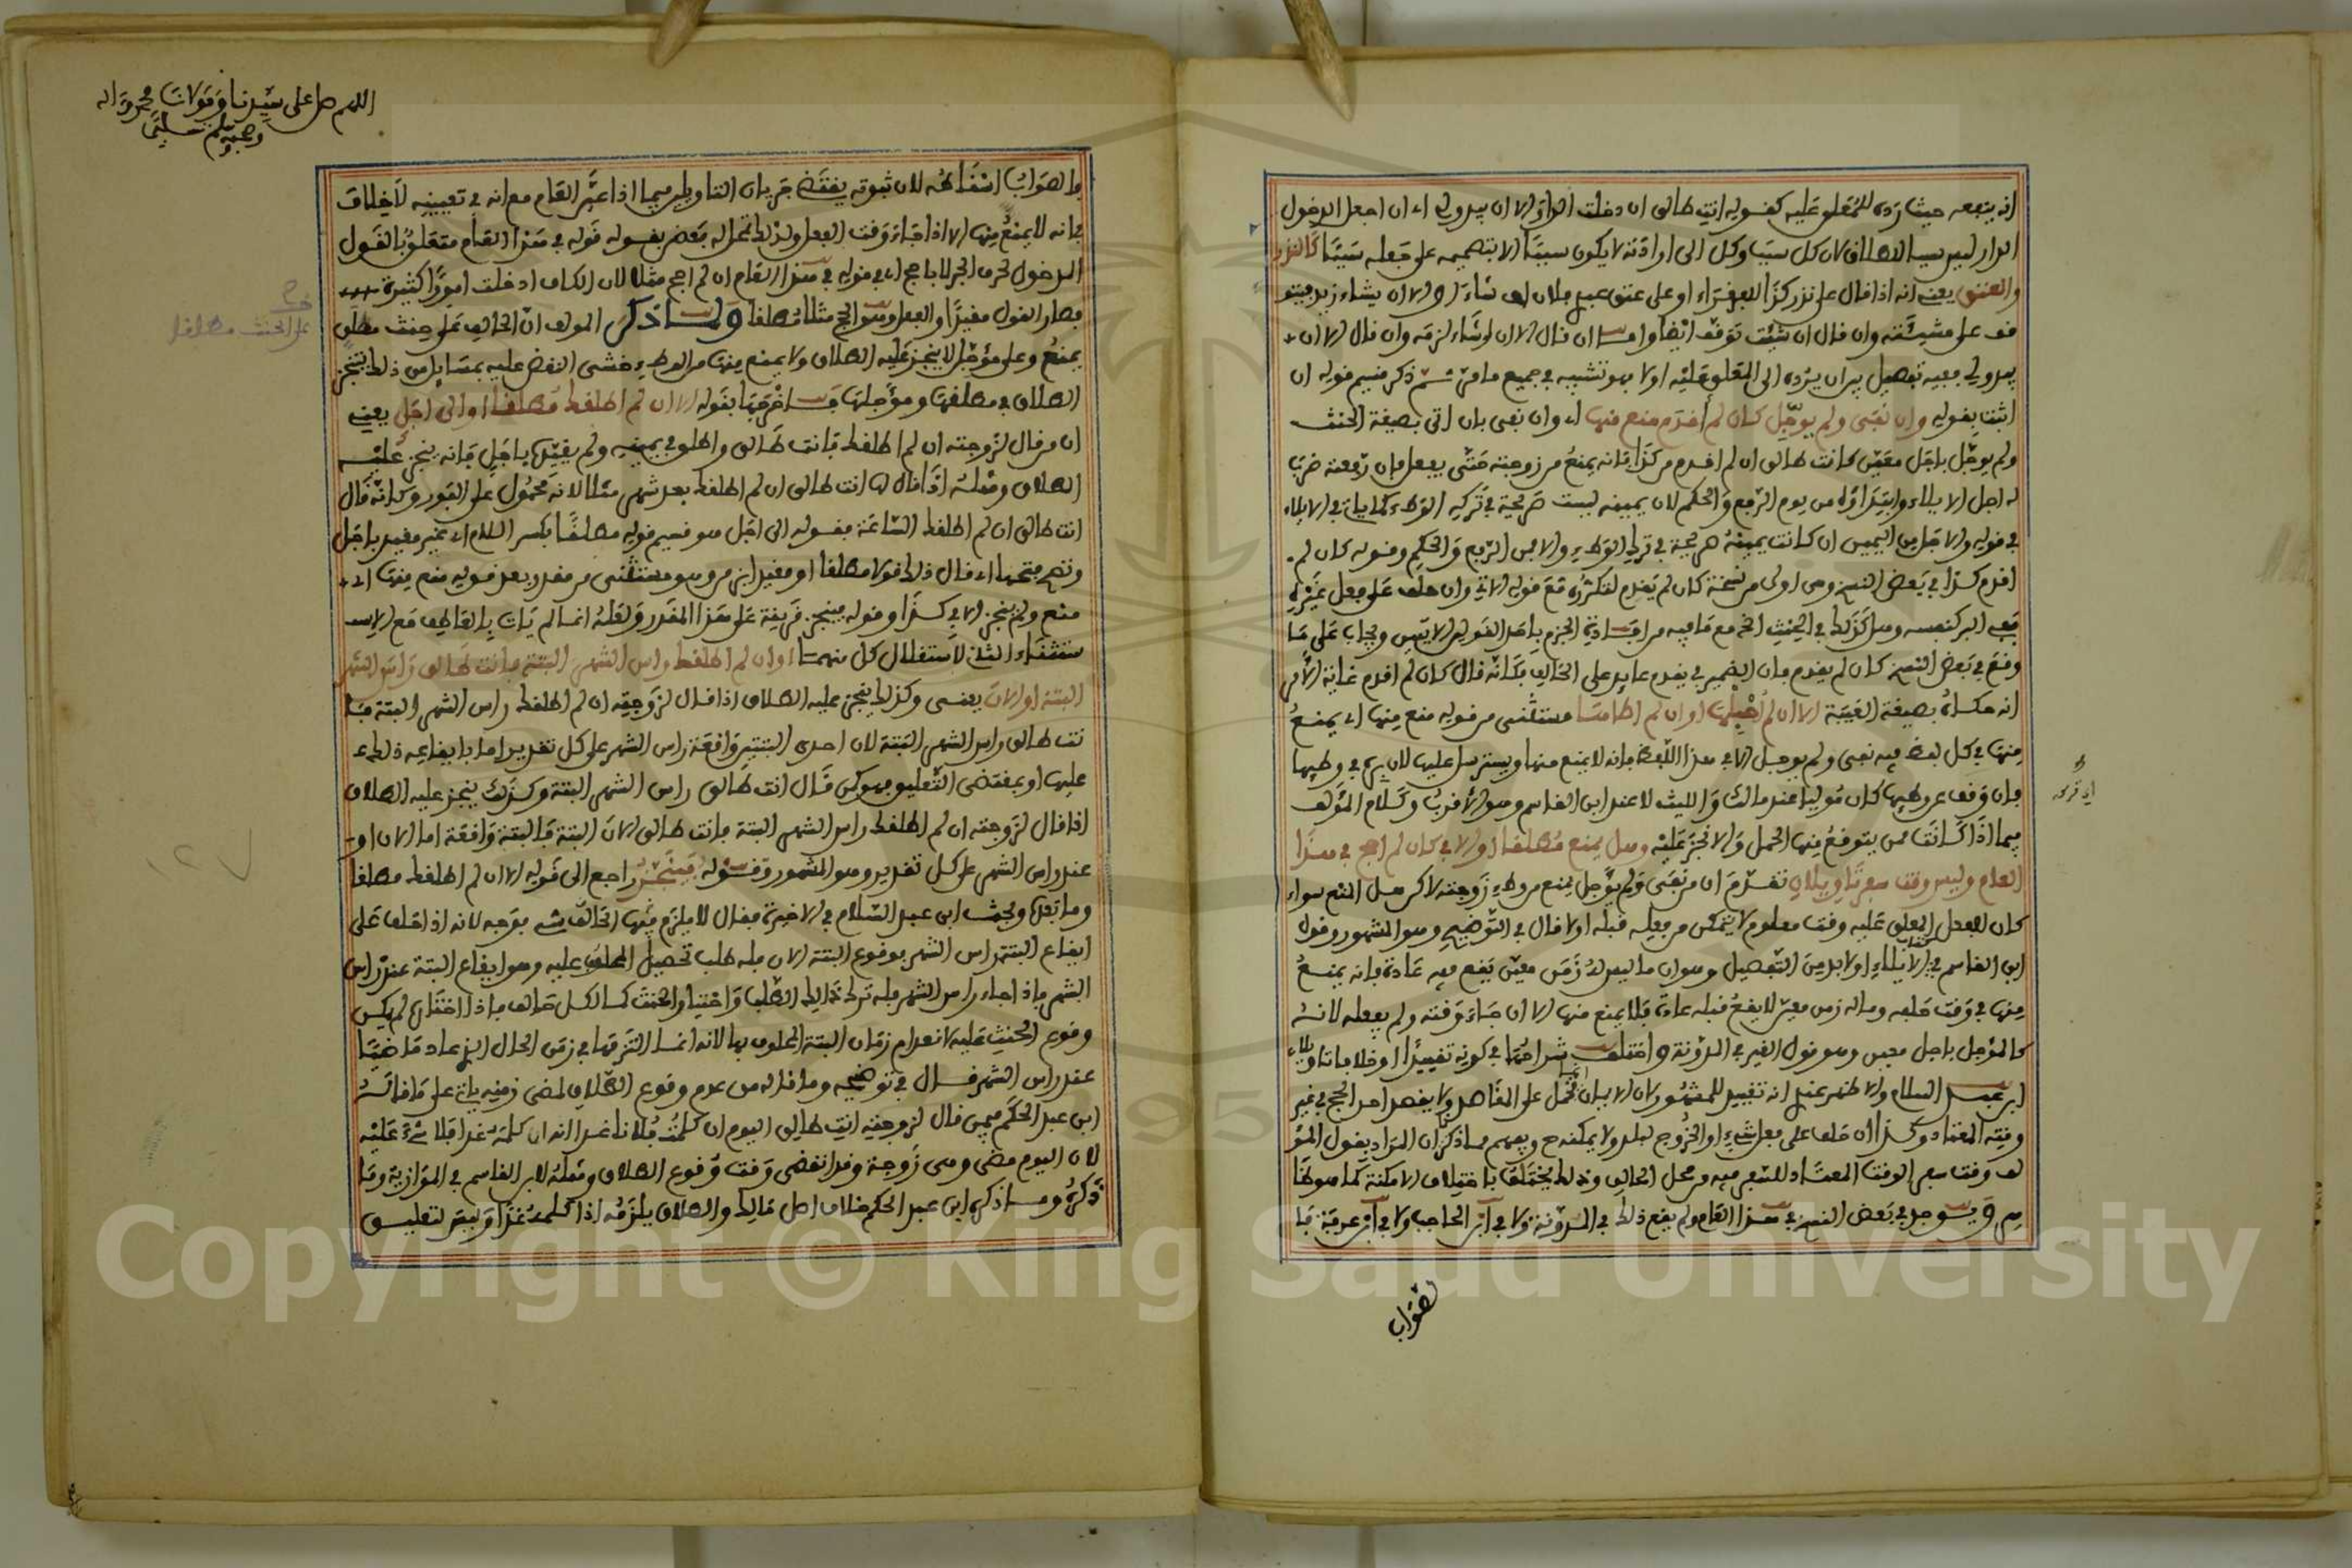 انه ينفعه حيث رده للمعلق عليه كقوله انت طالق ان دخلت الدار الا ان يبدو لي اي ان اجعل الدخول
الدار ليس سببا للطلاق لان كل سبب وكل الى ارادته لا يكون سببا الا بتصميمه على جعله سببا كالنذر
والعتق يعني انه اذا قال علي نذر كذا للفقراء او علي عتق عبد فلان ان شاء او الا ان يشاء زيد فيتو
قف على مشيئته وان قال ان شئت توقف ايضا واما ان قال الا ان اشاء لزمه وان قال الا ان
يبدو لي ففيه تفصيل بين ان يرده الى المعلق عليه او لا فهو تشبيه في جميع ما مر ثم ذكر قسيم قوله ان
اثبت بقوله وان نفى ولم يؤجل كان لم اقدم منع منها اي وان نفى بان اتى بصيغة الحنث
ولم يؤجل باجل معين كانت طالق ان لم افعل كذا فانه يمنع من زوجته حتى يفعل فان رفعته ضرب
له اجل الايلاء وابتداؤه من يوم الرفع والحكم لان يمينه ليست صريحة في تركه الوطء كما ياتي في الايلاء
في قوله والاجل من اليمين ان كانت يمينه صريحة في ترك الوطء والا فمن الرفع والحكم وقوله كان لم
اقدم كذا في بعض النسخ وهي اولى من نسخة كان لم يقدم لتكرره مع قوله الاتي وان حلف على فعل غيره
ففي البر كنفسه وهل كذلك في الحنث الخ مع ما فيه من افادة الجزم باحد القولين الاتيين ويجاب على ما
وقع في بعض النسخ كان لم يقدم بان الضمير في يقدم عايد على الحالف فكانه قال كان لم اقدم غاية الامر
انه حكاه بصيغة الغيبة الا ان لم احبلها او ان لم اطاها مستثنى من قوله منع منها اي يمنع
منها في كل لفظ فيه نفى ولم يؤجل الا في هذا اللفظ فانه لا يمنع منها ويسترسل عليها لان بره في وطئها
فان وقف عن وطئها كان موليا عند مالك والليث لا عند ابن القاسم وهو الاقرب وكلام المؤلف
فيما اذا كانت ممن يتوقع منها الحمل والا نجز عليه وهل يمنع مطلقا او الا في كان لم احج في هذا
العام وليس وقت سفر تاويلان تقدم ان من نفى ولم يؤجل يمنع من وطء زوجته لاكن هل المنع سواء
كان للفعل المعلق عليه وقت معلوم لا يتمكن من فعله قبله او لا قال في التوضيح وهو المشهور وقول
ابن القاسم في الايلاء او لا بد من التفصيل وهو ان ما ليس له زمن معين يقع فيه عادة فانه يمنع
منها في وقت حلفه وما له زمن معين لا يقع قبله عادة فلا يمنع منها الا ان جاء وقته ولم يفعله لانه
كالمؤجل باجل معين وهو قول الغير في المدونة واختلف شراحها في كونه تقييدا او خلافا تاويلان
ابن عبد السلام والاظهر عندي انه تقييد للمشهور لان الايمان انما تحمل على المقاصد ولا يقصد احد الحج في غير
وقته المعتاد وكذا ان حلف على فعل شيء او الخروج لبلد ولا يمكنه ح ويفهم مما ذكرنا ان المراد بقول المؤ
لف وقت سفر الوقت المعتاد للسفر فيه من محل الحالف وذلك يختلف باختلاف الامكنة كما هو ظا
هر ويوجد في بعض النسخ في هذا العام ولم يقع ذلك في المدونة ولا في ابن الحاجب ولا في ابن عرفة فا
لصواب
اللهم صل على سيدنا ومولانا محمد واله
وصحبه وسلم تسليما
فالصواب اسقاطه لان ثبوته يقتضي جريان التاويلين فيما اذا عين العام مع انه في تعيينه لا خلاف
فانه لا يمنع منها الا اذا جاء وقت الفعل ولذلك تمحل له بعض بقوله قوله في هذا العام متعلق بالقول
المدخول لحرف الجر لا باحج اي في قوله في هذا العام ان لم احج مثلا لان الكاف ادخلت امورا كثيرة
فصار القول مقيدا والفعل وهو الحج مثلا مطلقا ولما ذكر المؤلف ان الحالف على حنث مطلق
يمنع وعلى مؤجل لا ينجز عليه الطلاق ولا يمنع منها من الوطء خشي النقض عليه بمسايل من ذلك ينجز
الطلاق في مطلقها ومؤجلها فاخرجها بقوله الا ان لم اطلقك مطلقا او الى اجل يعني
ان من قال لزوجته ان لم اطلقك فانت طالق واطلق في يمينه ولم يقيدها باجل فانه ينجز عليه
الطلاق ومثله اذا قال لها انت طالق ان لم اطلقك بعد شهر مثلا لانه محمول على الفور وكانه قال
انت طالق ان لم اطلقك الساعة فقوله الى اجل هو قسيم قوله مطلقا بكسر اللام اي غير مقيد باجل
وتصح فتحها اي قال ذلك قولا مطلقا او مقيدا بزمن وهو مستثنى من مقدر بعد قوله منع منها اي
منع ولم ينجز الا في كذا وقوله فينجز قرينة على هذا المقدر ولعله انما لم يات بالعاطف مع الاسـ
ـتثناء الثاني لاستقلال كل منهما او ان لم اطلقك راس الشهر البتة فانت طالق راس الشهر
البتة او الان يعني وكذلك ينجز عليه الطلاق اذا قال لزوجته ان لم اطلقك راس الشهر البتة فا
نت طالق راس الشهر البتة لان احدى البتتين واقعة راس الشهر على كل تقدير اما بايقاعه ذلك
عليها او بمقتضى التعليق فهو كمن قال انت طالق راس الشهر البتة وكذلك ينجز عليه الطلاق
اذا قال لزوجته ان لم اطلقك راس الشهر البتة فانت طالق الان البتة فالبتة واقعة اما الان او
عند راس الشهر على كل تقدير وهو المشهور وقوله فينجز راجع الى قوله الا ان لم اطلقك مطلقا
وما بعدها وبحث ابن عبد السلام في الاخيرة فقال لا يلزم فيها الحالف شيء بوجه لانه اذا حلف على
ايقاع البتة راس الشهر بوقوع البتة الان فله طلب تحصيل المحلوف عليه وهو ايقاع البتة عند راس
الشهر فاذا جاء راس الشهر فله ترك ذلك الطلب واختيار الحنث كما لكل حالف فاذا اختاره لم يمكن
وقوع الحنث عليه لانعدام زمان البتة المحلوف بها لانه انما التزمها في زمن الحال الذي عاد ماضيا
عند راس الشهر قال في توضيحه وما قاله من عدم وقوع الطلاق لمضي زمنه يات على ما قاله
ابن عبد الحكم فيمن قال لزوجته انت طالق اليوم ان كلمت فلانا غدا انه ان كلمه غدا فلا شيء عليه
لان اليوم مضى وهي زوجة وقد انقضى وقت وقوع الطلاق ومثله لابن القاسم في الموازية وما
ذكره وما ذكره ابن عبد الحكم خلاف اصل مالك والطلاق يلزمه اذا كلمه غدا وليس لتعليق
على الحنث مطلقا